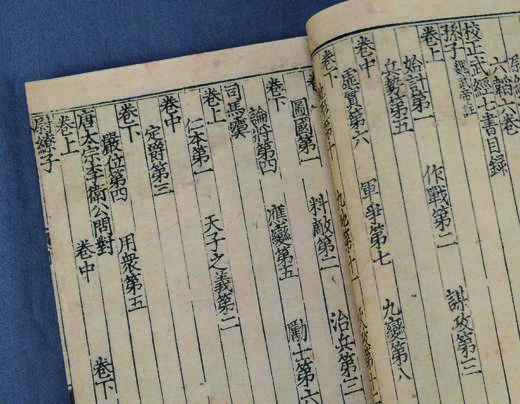 六韜六卷
校正武經七書目錄
孫子 魏武帝註
卷上
始計第一 作戰第二 謀攻第三
卷中
兵勢第五
虛實第六 軍爭第七 九變第八
卷下
九地第十一
圖國第一 料敵第二 治兵第三
卷下
論將第四 應變第五 勵士第六
司馬灋
卷上
仁本第一 天子之義第二
卷中
定爵第三
卷下
嚴位第四 用衆第五
唐太宗李衛公問對
卷上 卷中 卷下
尉繚子